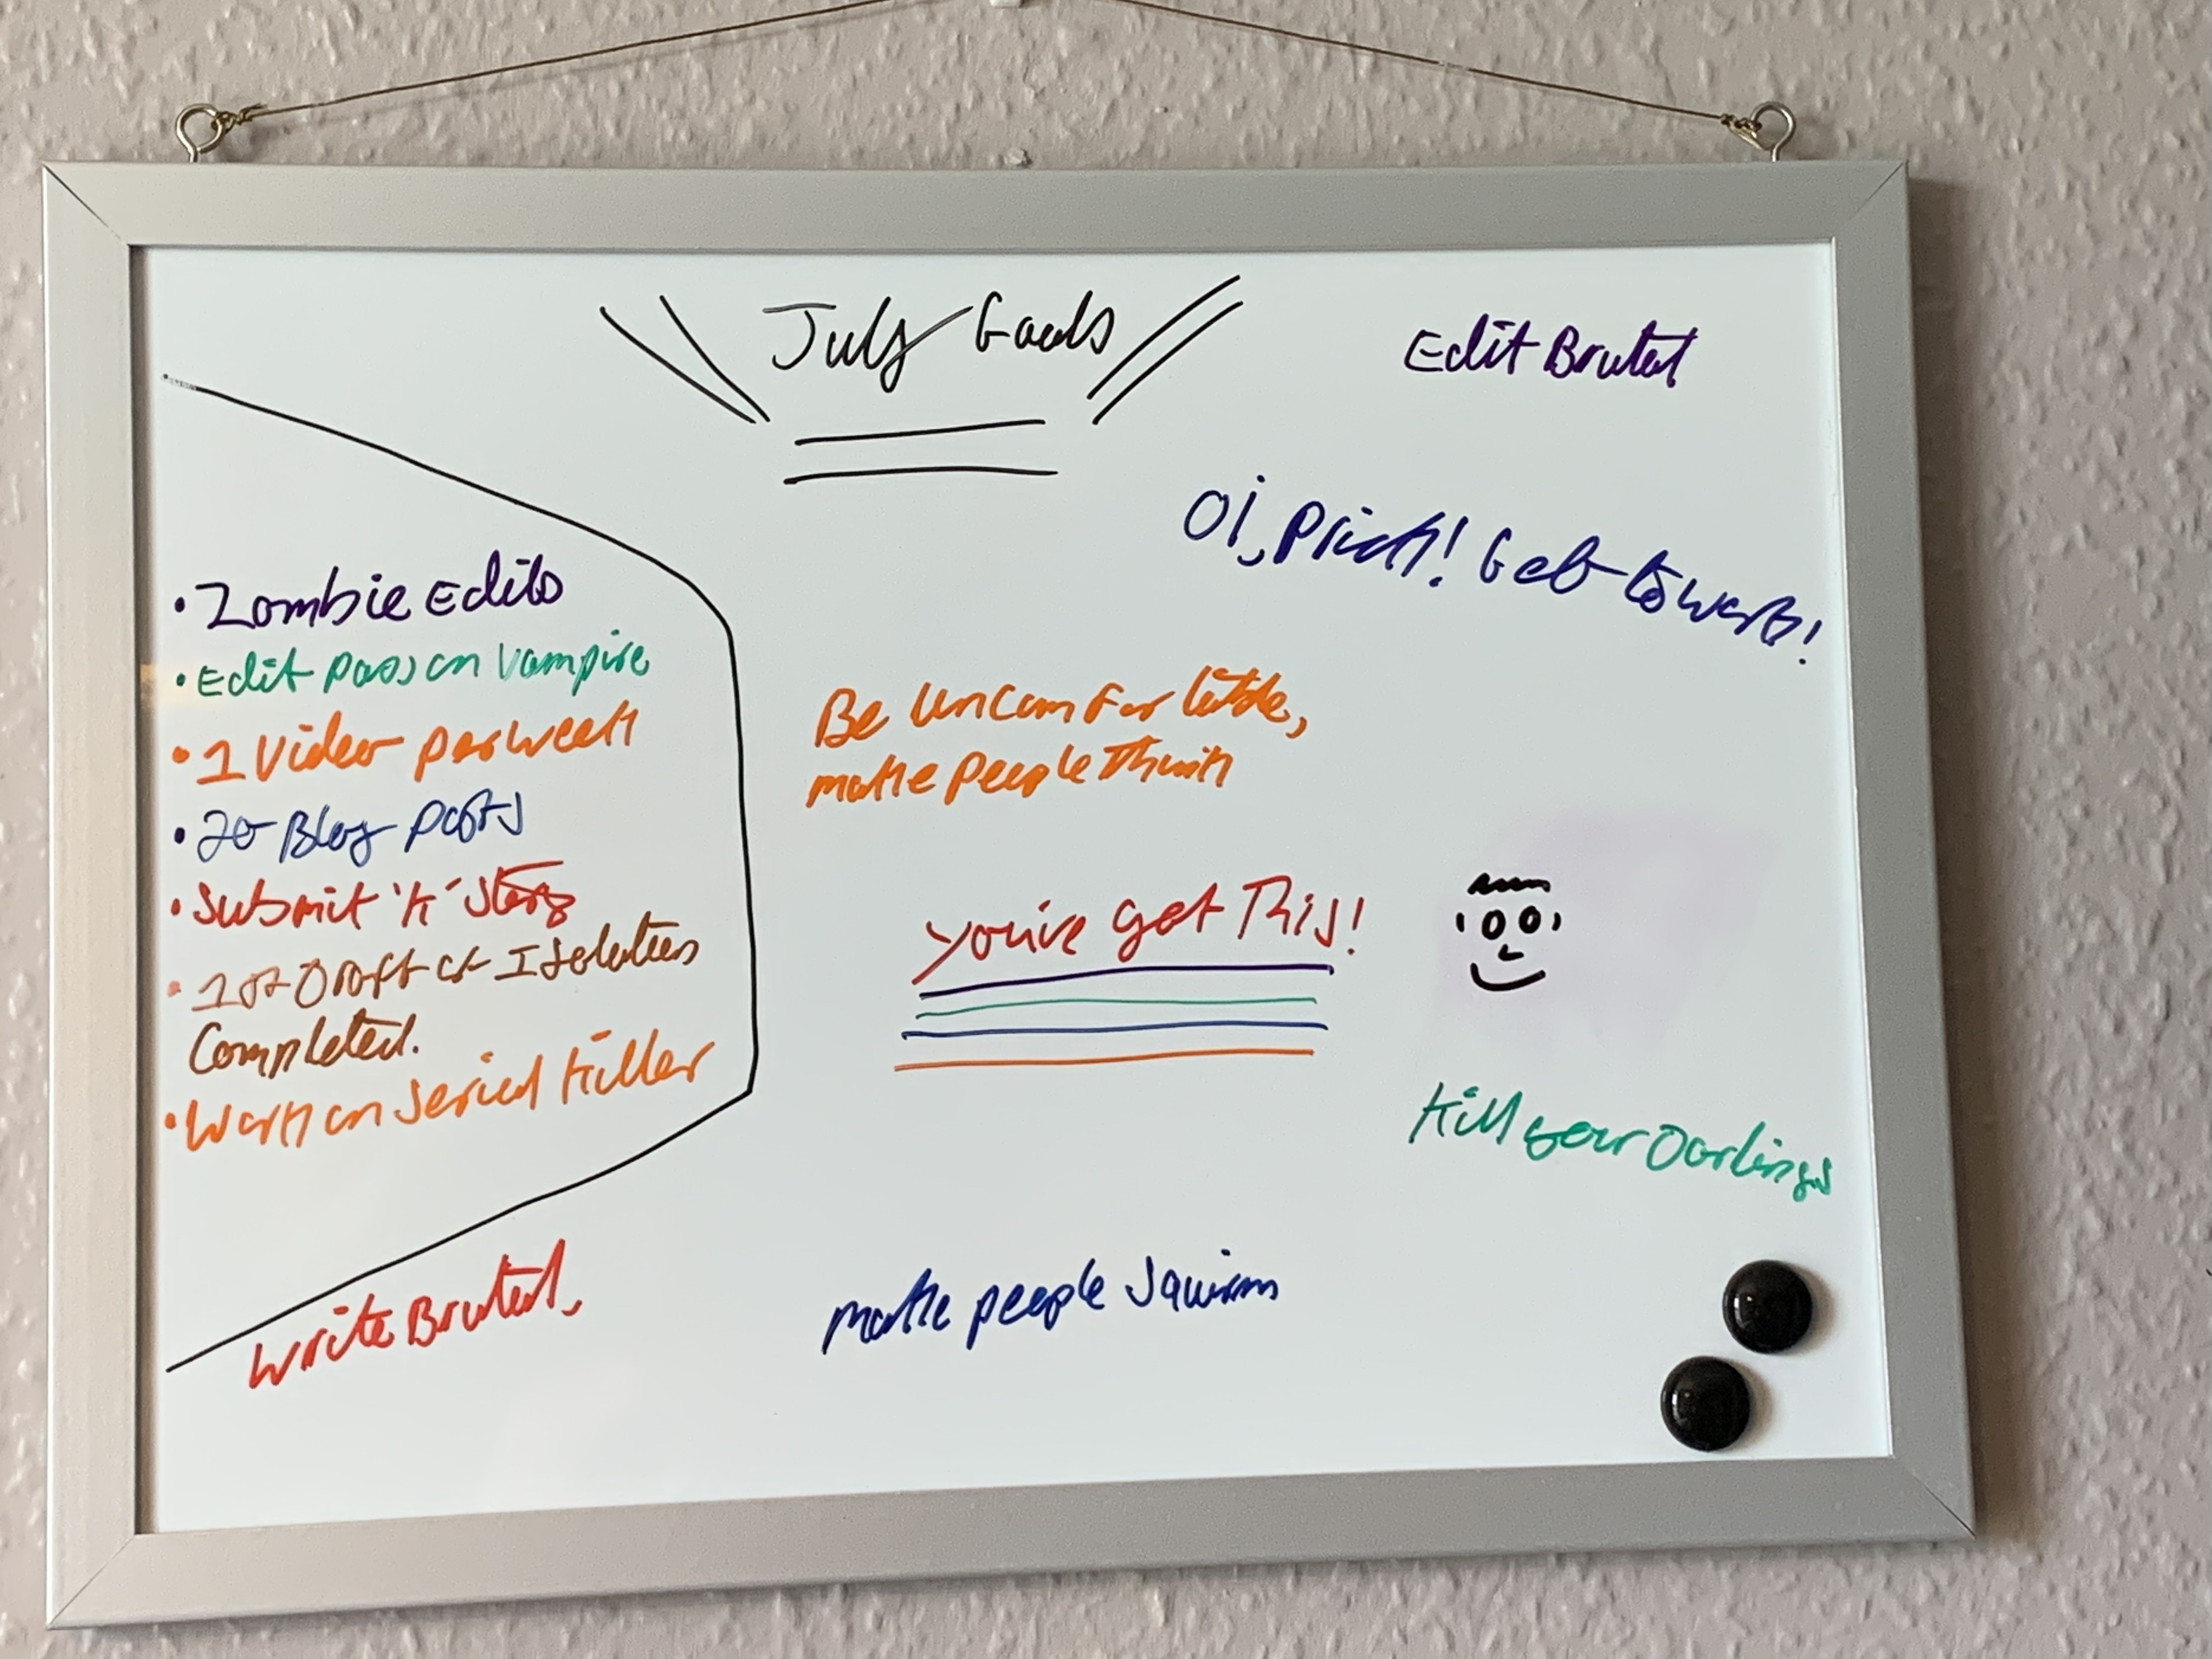 July Goals
Edit Brutal
Oi, Prick! Get to work!
• Zombie Edits
• Edit pass on Vampire
• 1 Video per week
• 20 Blog posts
• Submit 'K' Story
• 1st Draft of Isolation
Completed.
• Work on Serial Killer
Be Uncomfortable,
make people Think
You've got This!
Kill your Darlings
Write Brutal.
Make people Squirm